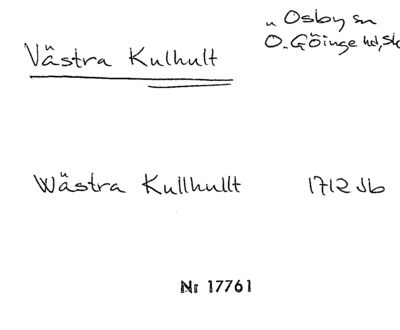 Västra Kulhult
„ Osby sn
O. Göinge hd, Sk
Wästra Kullhullt 1712 Jb
Nr 17761